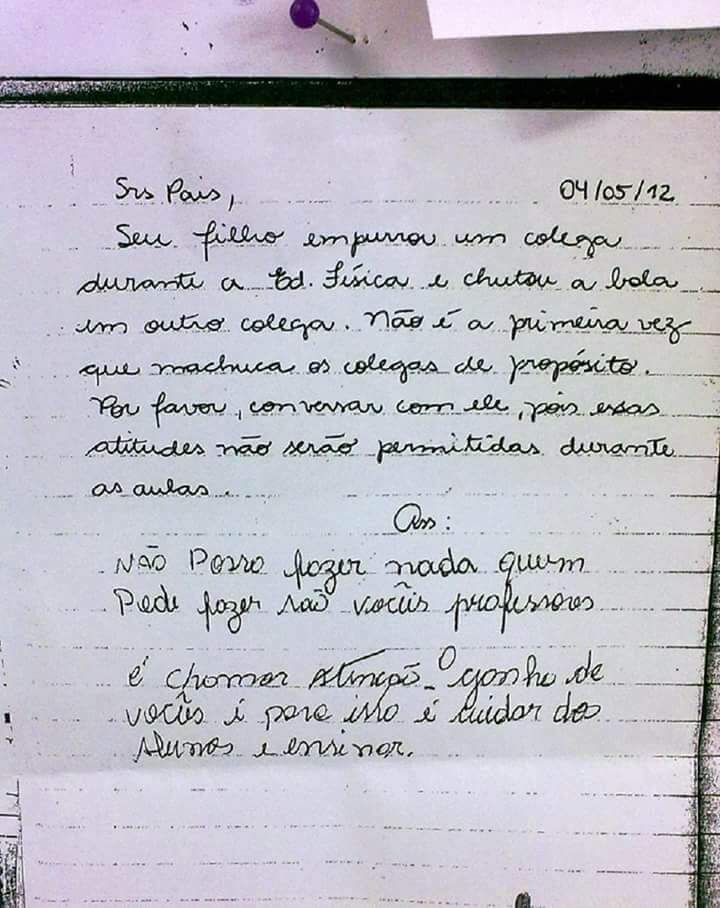 Srs Pais, 04/05/12
Seu filho empurrou um colega
durante a Ed. Física e chutou a bola
em outro colega. Não é a primeira vez
que machuca os colegas de propósito.
Por favor, conversar com ele, pois essas
atitudes não serão permitidas durante
as aulas.
Ass:
NÃO Posso fazer nada quem
Pode fazer são vocês professores
é chamar atenção. O ganho de
vocês é para isso é cuidar dos
Alunos e ensinar.